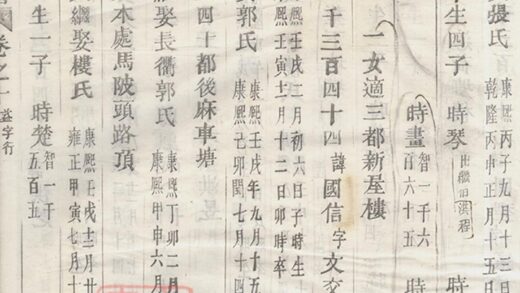 張氏 康熙丙子九月十三
乾隆丙申正月十三
生四子 時琴 出繼 時
時畫 智一千六
百六十五 時
一女適三都新屋樓
千三百四十四 諱國信字文交
康熙壬戌二月初六日子時生
康熙壬寅十二月十二日卯時卒
郭氏 康熙壬戌年九月十五
康熙己卯閏七月十四
四十都後麻車塘
娶長衢郭氏 康熙丁卯二月
康熙甲申六月
本處馬陂頭路頂
繼娶樓氏 康熙壬戌十二月廿
雍正甲寅七月十
生一子 時楚 智一千
五百五
卷之一 益字行